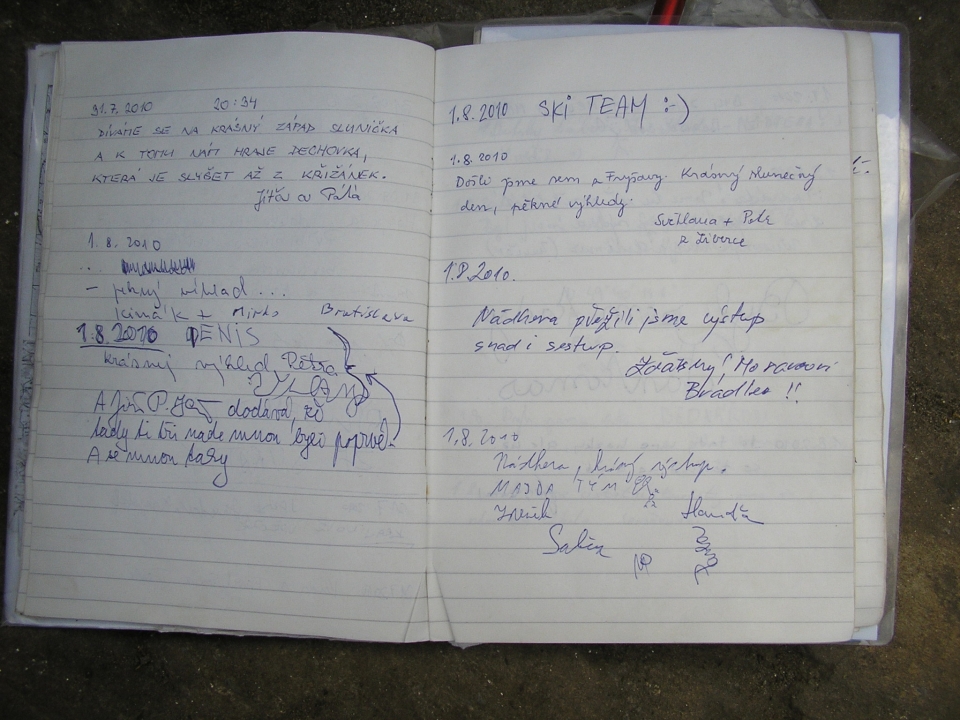 31.7.2010 20:34
DÍVÁME SE NA KRÁSNÝ ZÁPAD SLUNÍČKA
A K TOMU NÁM HRAJE DECHOVKA,
KTERÁ JE SLYŠET AŽ Z KŘIŽÁNEK.
Jiťa a Páťa
1. 8. 2010
...
- pekný výhlad...
+ Mirka Bratislava
1.8.2010 DENIS
krásný výhled,
A Jiří P. dodává, že
tady ti tři nade mnou byli poprvé.
A se mnou taky
1.8.2010 SKI TEAM :-)
1.8.2010
Došli jsme sem z Fryšavy. Krásný slunečný
den, pěkné výhledy.
Světlana + Petr
z Liberce
1.8.2010.
Nádhera přežili jsme výstup
snad i sestup.
Žďárský, Moravovi
Brádlea !!
1.8.2010
Nádhera, krásný výstup.
MAJDA TÝM
Zdeněk Handa